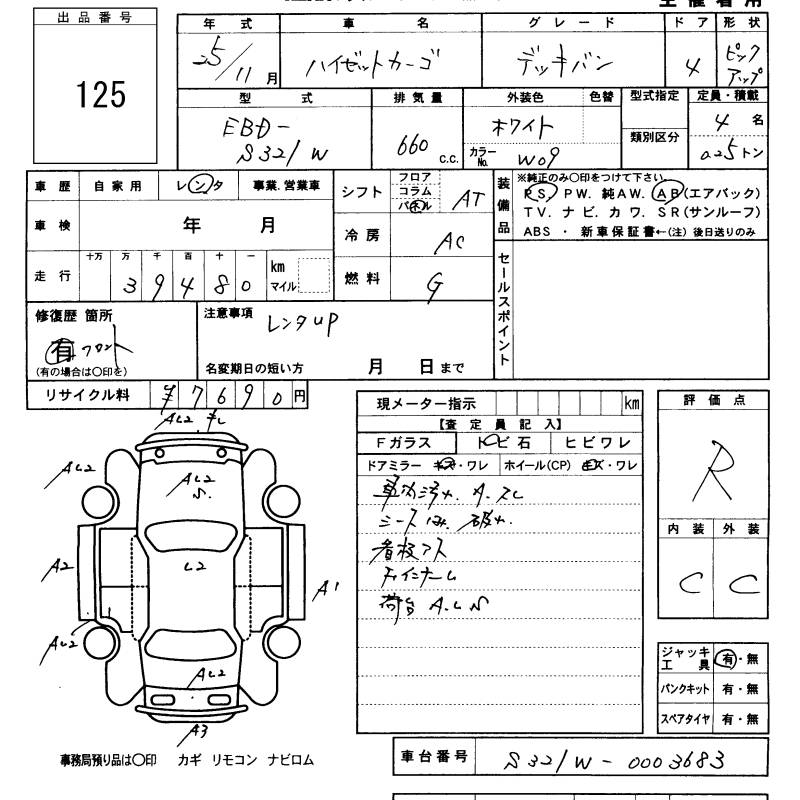 出品番号
125
年式 車名 グレード ドア 形状
25/11月 ハイゼットカーゴ デッキバン 4 ピックアップ
型式 排気量 外装色 色替 型式指定 定員・積載
EBD-S321W 660 C.C. ホワイト 類別区分 4名
カラーNo. W09 0.25トン
車歴 自家用 レンタ 事業.営業車
車検 年 月
走行 十万 万 千 百 十 一 km マイル
39480
シフト フロア コラム パネル AT
冷房 AC
燃料 G
装備品
※純正のみ〇印をつけて下さい。
PS. PW. 純AW. AB(エアバック)
TV. ナビ. カワ. SR(サンルーフ)
ABS ・ 新車保証書←(注) 後日送りのみ
セールスポイント
修復歴 箇所
有 フロント
(有の場合は〇印を)
注意事項 レンタUP
名変期日の短い方 月 日まで
リサイクル料 ¥7690円
現メーター指示 km
【査定員記入】
Fガラス トビ石 ヒビワレ
ドアミラー キズ・ワレ ホイール(CP) キズ・ワレ
車内汚れ. A.スレ
シート 破れ.
看板アト
荷台 A.L.S
評価点
R
内装 外装
C C
ジャッキ工具 有・無
パンクキット 有・無
スペアタイヤ 有・無
AL2
AL2
AL2 S.
A2
L2
A1
AL2
AL2
A3
事務局預り品は〇印 カギ リモコン ナビロム
車台番号 S321W-0003683